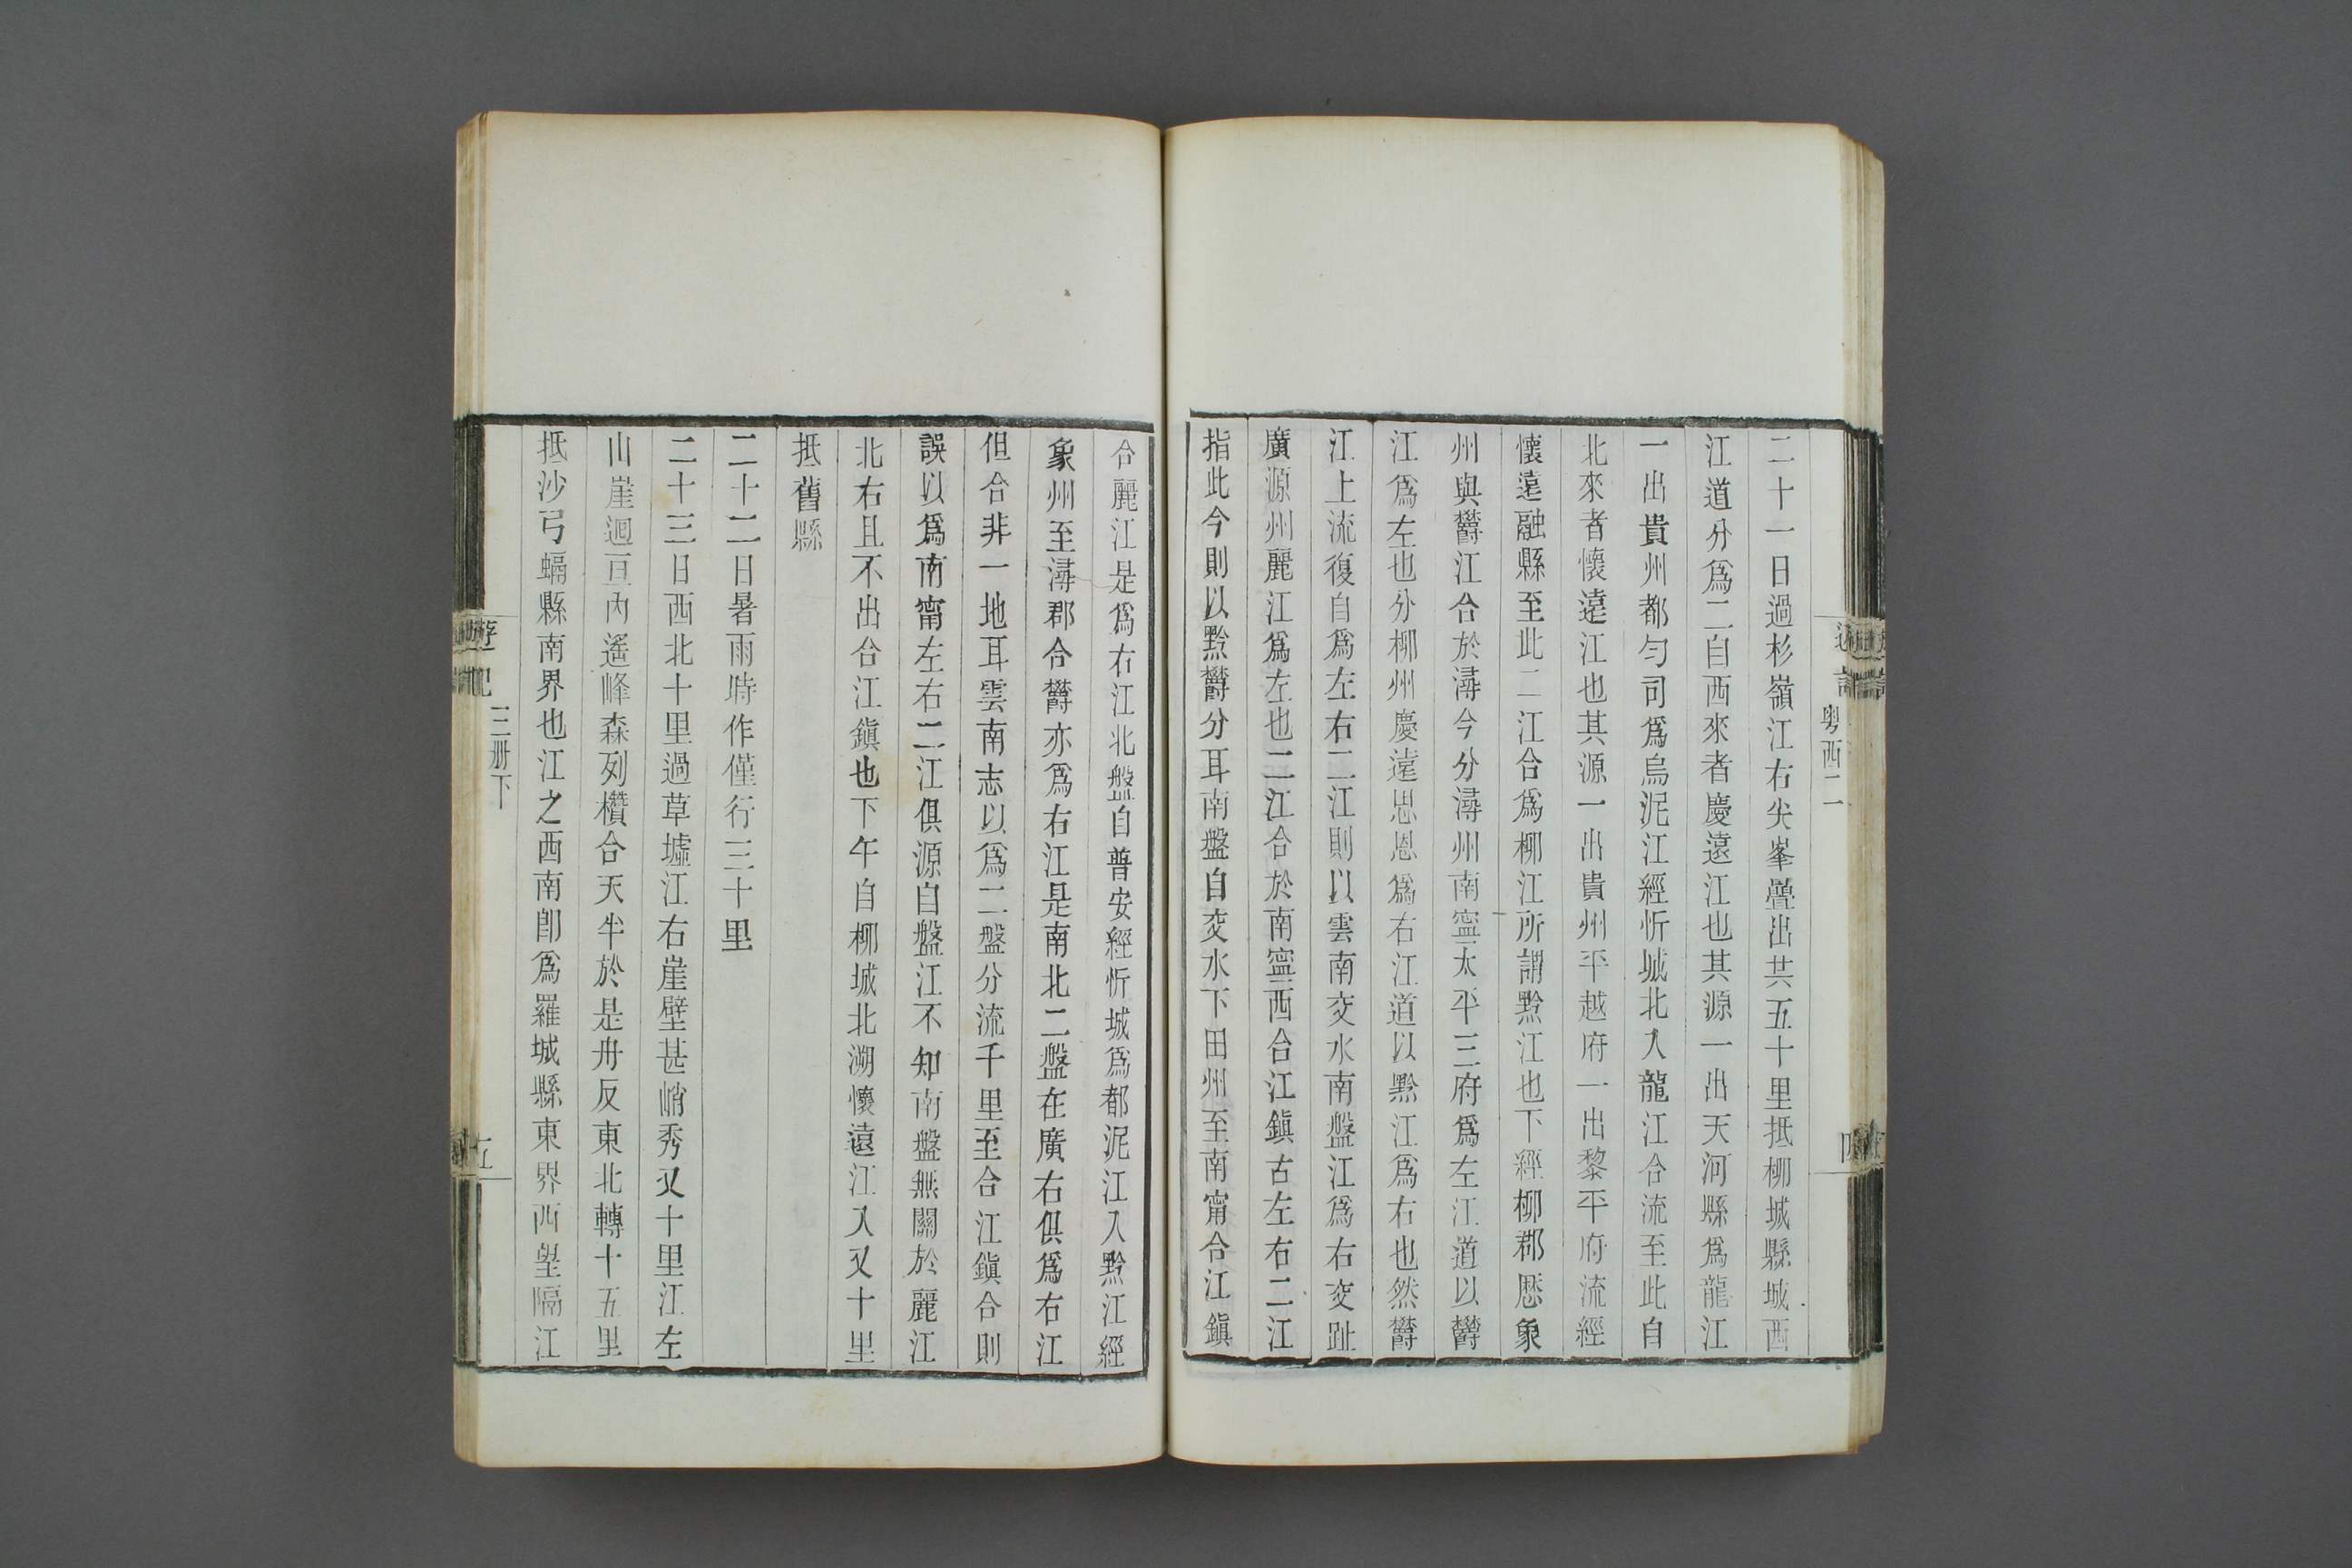 粤西二
二十一日過杉嶺江右尖峯疊出共五十里抵柳城縣城西
江道分爲二自西來者慶遠江也其源一出天河縣爲龍江
一出貴州都勻司爲烏泥江經忻城北入龍江合流至此自
北來者懷遠江也其源一出貴州平越府一出黎平府流經
懷遠融縣至此二江合爲柳江所謂黔江也下經柳郡歷象
州與欝江合於潯今分潯州南寧太平三府爲左江道以欝
江爲左也分柳州慶遠思恩爲右江道以黔江爲右也然欝
江上流復自爲左右二江則以雲南交水南盤江爲右交趾
廣源州麗江爲左也二江合於南寧西合江鎭古左右二江
指此今則以黔欝分耳南盤自交水下田州至南甯合江鎭
合麗江是爲右江北盤自普安經忻城爲都泥江入黔江經
象州至潯郡合欝亦爲右江是南北二盤在廣右俱爲右江
但合非一地耳雲南志以爲二盤分流千里至合江鎭合則
誤以爲南甯左右二江俱源自盤江不知南盤無關於麗江
北右且不出合江鎭也下午自柳城北溯懷遠江入又十里
抵舊縣
二十二日暑雨時作僅行三十里
二十三日西北十里過草墟江右崖壁甚峭秀又十里江左
山崖迴亘內遙峰森列欑合天半於是舟反東北轉十五里
抵沙弓蝹縣南界也江之西南卽爲羅城縣東界西望隔江
遊記
三册下
五